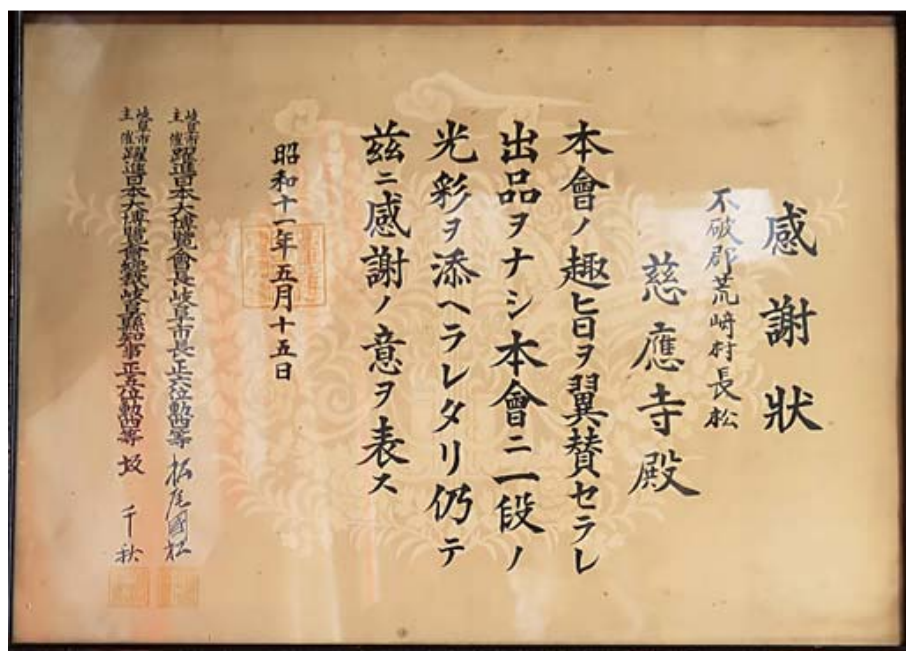 感謝狀
不破郡荒崎村長松
慈應寺殿
本會ノ趣旨ヲ翼賛セラレ
出品ヲナシ本會ニ一段ノ
光彩ヲ添ヘラレタリ仍テ
茲ニ感謝ノ意ヲ表ス
昭和十一年五月十五日
岐阜市主催躍進日本大博覽會長岐阜市長正六位勳四等 松尾國松
岐阜市主催躍進日本大博覽會總裁岐阜縣知事正五位勳四等 坂千秋